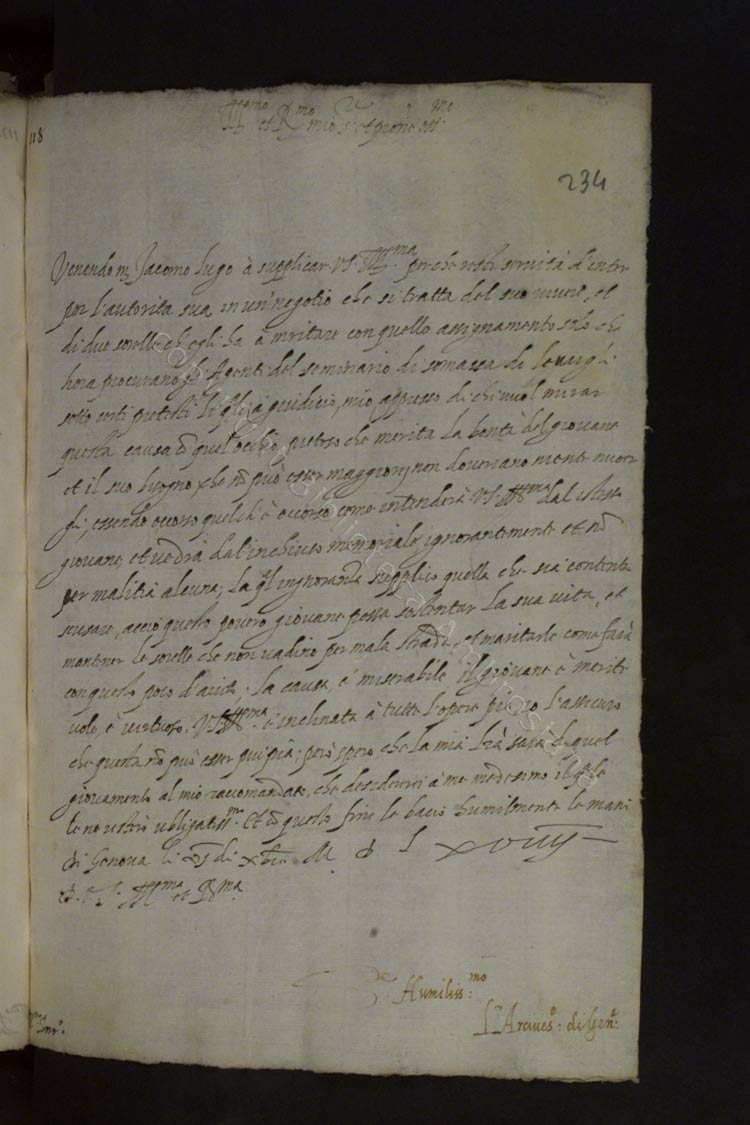 118
Ill.mo et R.mo mio S.r et p̃rone oss.mo
234
Venendo m. Jacomo lugo à supplicar V.S. Ill.ma perche resti servita d'inter
por l'autorita sua in un negotio che si tratta del suo vivere, et
di due sorelle ch'egli ha à maritare con quello assignamento solo che
hora procurano gli Agenti del seminario di somasca di levargli
sotto certi pretesti; li q̃li à giuditio mio appresso di chi vuol mirar
questa causa cõ quel occhio pietoso che merita la bontà del giovane
et il suo bisogno, che nõ può esser maggiore, non doveriano niente nuocer
gli; essendo occorso quel ch'è occorso come intenderà V.S. Ill.ma dal istesso
giovane, et vedrà dal'inchiuso memoriale, ignorantemente et nõ
per malitia alcuna; la q̃l ignoranza supplico quella che sia contenta
scusare, acciò questo povero giovane possa sostentar la sua vita, et
mantener le sorelle che non vadino per mala strada, et maritarle come farà
con questo poco d'aiuto; la causa è miserabile il giovane è merite
vole, è virtuoso. V.S. Ill.ma è inclinata à tutte l'opere pie, io l'assicuro
che questa nõ può esser più pia; però spero che la mia l̃ra sarà di quel
giovamento al mio racomandato, che desiderei à me medesimo il q̃le
le ne restirò ubligatiss.mo Et cõ questo fine le bacio humilmente le mani
Di Genova li di xbre M. D L xviiij
D. V. S. Ill.ma et R.ma
Humiliss.mo
L'Arcives.o di Gen.a